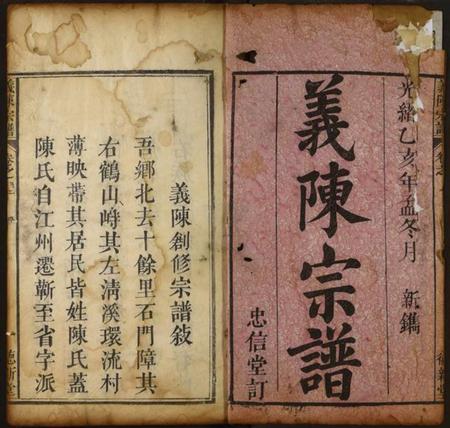 光緒乙亥年孟冬月 新鐫
義陳宗譜
忠信堂訂
義陳創修宗譜敍
吾鄉北去十餘里石門障其
右鶴山峙其左淸溪環流村
薄映帶其居民皆姓陳氏蓋
陳氏自江州遷蘄至省字派
義陳宗譜